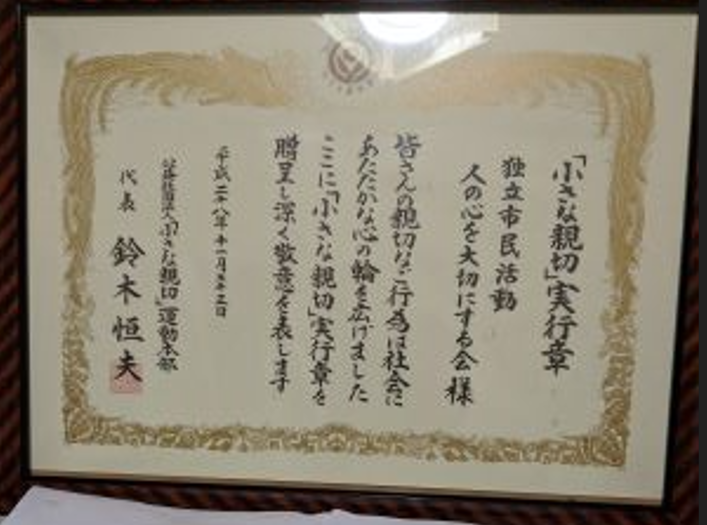 「小さな親切」実行章
独立市民活動
人の心を大切にする会 様
皆さんの親切なご行為は社会に
あたたかな心の輪を広げました
ここに「小さな親切」実行章を
贈呈し深く敬意を表します
平成二十八年十一月
公益社団法人「小さな親切」運動本部
代表 鈴木恒夫